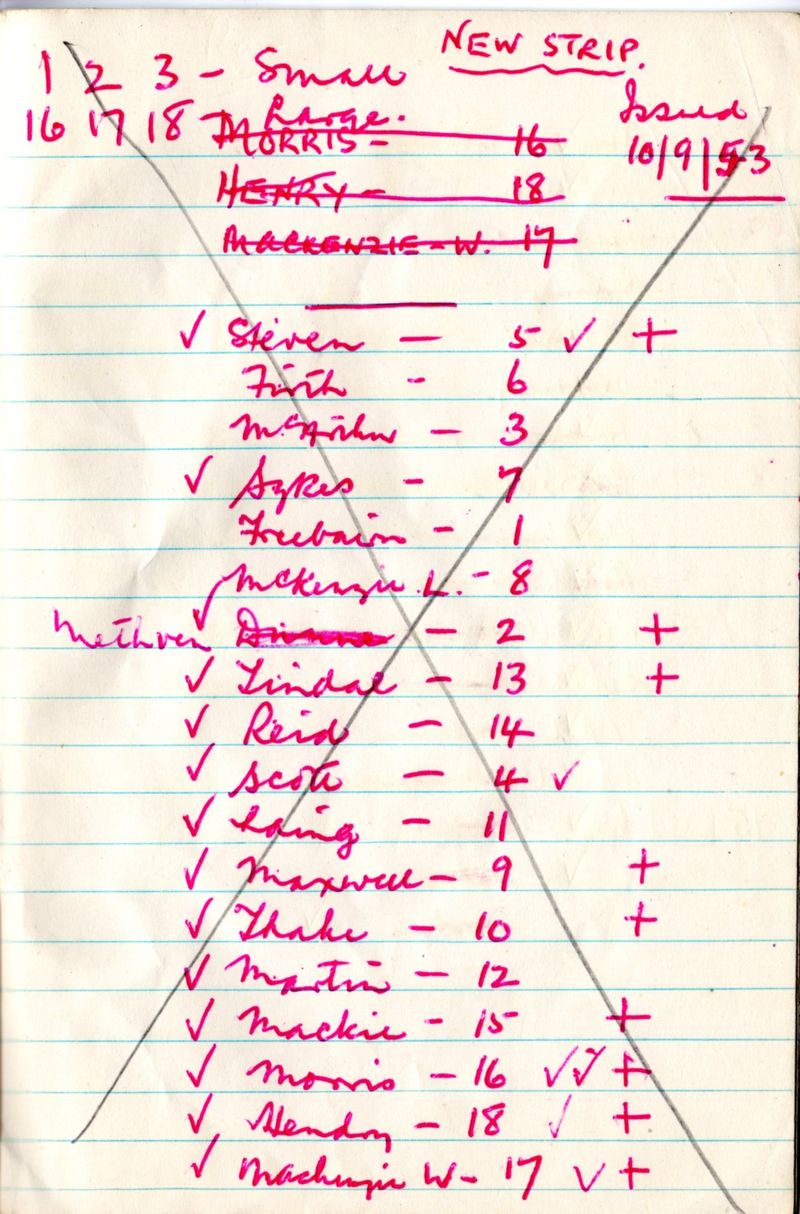 NEW STRIP.
1 2 3 - Small
16 17 18 - Large.
Issued
10/9/53
MORRIS - 16
HENRY - 18
MACKENZIE - W. 17
✓ Steven - 5 ✓ +
Firth - 6
McArthur - 3
✓ Sykes - 7
Freebairn - 1
✓ McKenzie L. - 8
Methven - 2 +
✓ Lindal - 13 +
✓ Reid - 14
✓ Scott - 4 ✓
✓ Laing - 11
✓ Maxwell - 9 +
✓ Thake - 10 +
✓ Martin - 12
✓ Mackie - 15 +
✓ Morris - 16 ✓✓ +
✓ Hendry - 18 ✓ +
✓ Mackenzie W - 17 ✓ +